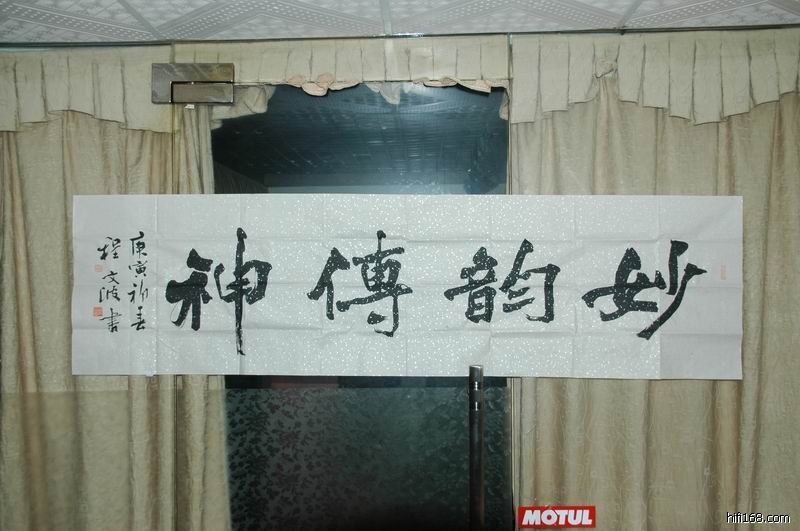 妙韵傳神
庚寅初春
程文波書
MOTUL
hifi168.com